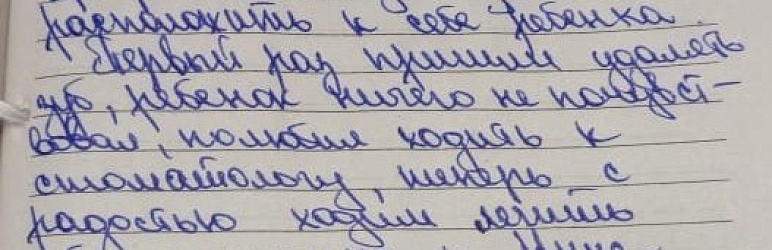 расположить к себе ребенка.
Первый раз пришли удалять
зуб, ребенок ничего не почувст-
вовал, полюбил ходить к
стоматологу, теперь с
радостью ходим лечить